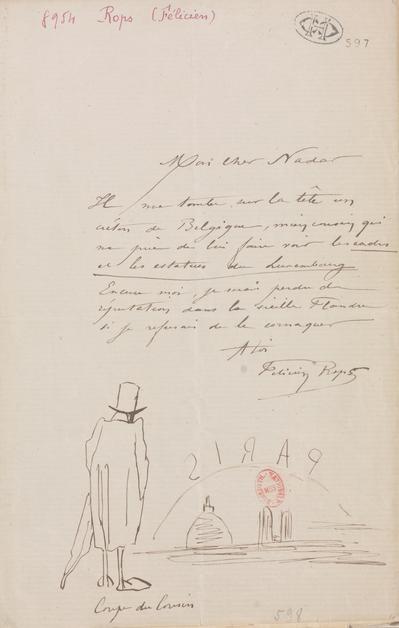 8954 Rops (Félicien)
597
Mon cher Nadar
Il me tombe sur la tête un
crétin de Belgique, mien cousin, qui
me prie de lui faire voir les cadres
et les estatues du Luxembourg
Excuse moi je serais perdu de
réputation dans la vieille Flandre
si je refusais de le cornaquer
A toi
Félicien Rops
PARIS
Coupe du Cousin
598